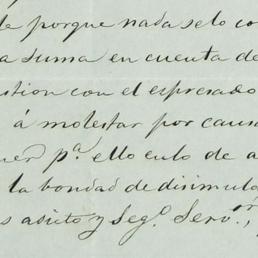 de porque nada selo co
a suma en cuenta de
stion con el espresado
á molestar por caus
uer p.ª ello culo de a
la bondad de disimulo
s adicto y Seg.º Serv.or,